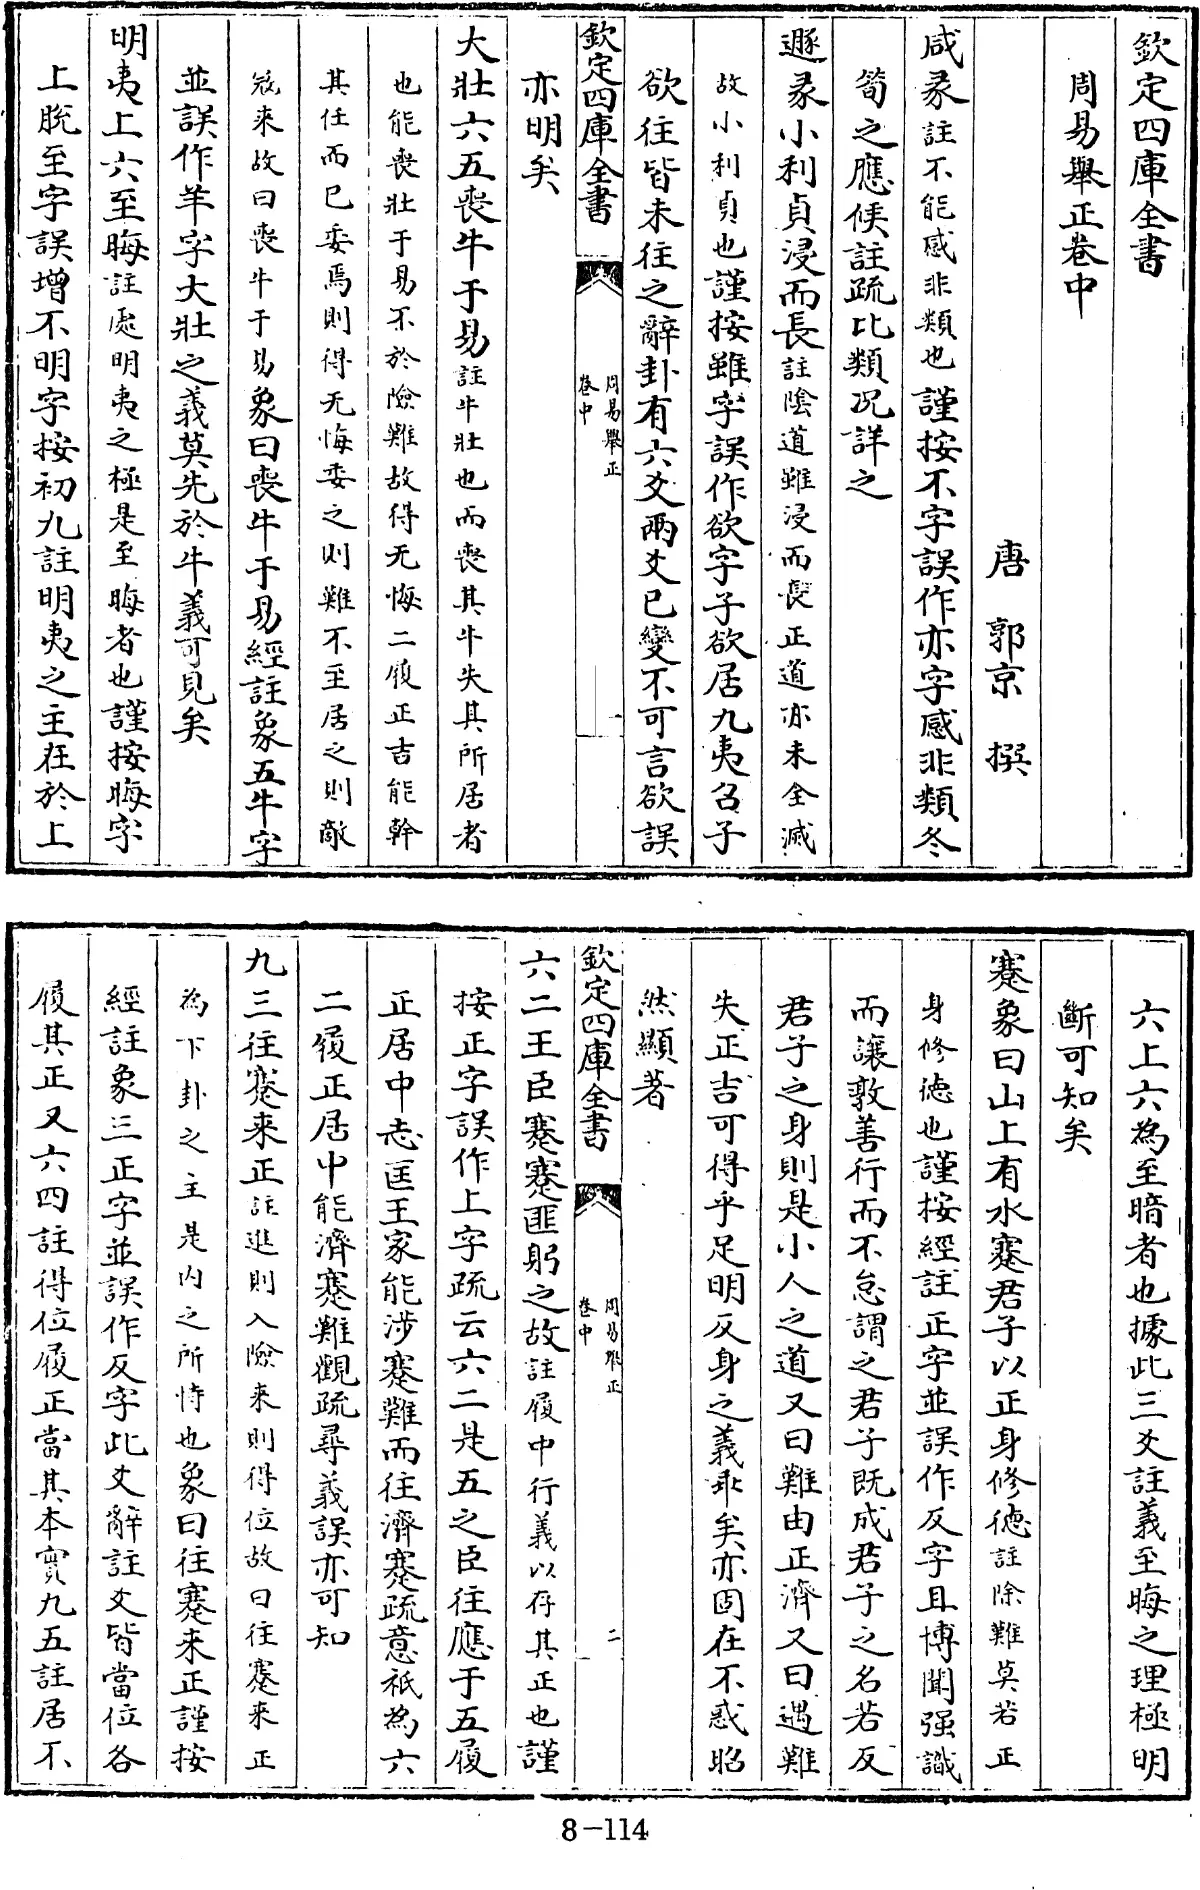 欽定四庫全書
周易舉正卷中
唐 郭京 撰
咸彖註不能感非類也謹按不字誤作亦字感非類冬
筍之應候註疏比類況詳之
遯彖小利貞浸而長註陰道雖浸而長正道亦未全滅
故小利貞也謹按雖字誤作欲字子欲居九夷召子
欲往皆未往之辭卦有六爻兩爻已變不可言欲誤
欽定四庫全書
周易舉正
卷中
一
亦明矣
大壯六五喪牛于易註牛壯也而喪其牛失其所居者
也能喪壯于易不於險難故得无悔二履正吉能幹
其任而已委焉則得无悔委之則難不至居之則敵
寇來故曰喪牛于易象曰喪牛于易經註象五牛字
並誤作羊字大壯之義莫先於牛義可見矣
明夷上六至晦註處明夷之極是至晦者也謹按晦字
上脫至字誤增不明字按初九註明夷之主在於上
六上六為至暗者也據此三爻註義至晦之理極明
斷可知矣
蹇象曰山上有水蹇君子以正身修德註除難莫若正
身修德也謹按經註正字並誤作反字且博聞强識
而讓敦善行而不怠謂之君子既成君子之名若反
君子之身則是小人之道又曰難由正濟又曰遇難
失正吉可得乎足明反身之義乖矣亦固在不惑昭
然顯著
欽定四庫全書
周易舉正
卷中
二
六二王臣蹇蹇匪躬之故註履中行義以存其正也謹
按正字誤作上字疏云六二是五之臣往應于五履
正居中志匡王家能涉蹇難而往濟蹇疏意祇為六
二履正居中能濟蹇難觀疏尋義誤亦可知
九三往蹇來正註進則入險來則得位故曰往蹇來正
為下卦之主是內之所恃也象曰往蹇來正謹按
經註象三正字並誤作反字此爻辭註爻皆當位各
履其正又六四註得位履正當其本實九五註居不
8-114